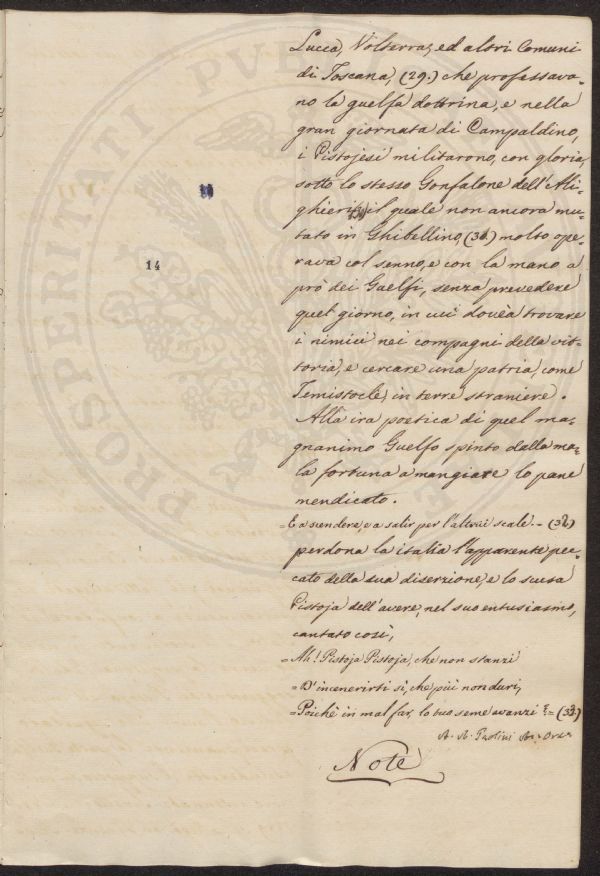 Lucca, Volterra, ed altri Comuni
di Toscana, (29.) che professava-
no la guelfa dottrina, e nella
gran giornata di Campaldino,
i Pistojesi militarono, con gloria,
sotto lo stesso Gonfalone dell'Ali-
ghieri, il quale non ancora mu-
tato in Ghibellino, (31.) molto ope-
rava col senno, e con la mano a
prò dei Guelfi, senza prevedere
quel giorno, in cui dovèa trovare
i nimici nei compagni della vit-
toria, e cercare una patria, come
Temistocle, in terre straniere.
Alla ira poetica di quel ma-
gnanimo Guelfo spinto dalla ma-
la fortuna a mangiare lo pane
mendicato.
=E a scendere, e a salir per l'altrui scale.= (32.)
perdona la italia l'apparente pec-
cato della sua diserzione, e lo scusa
Pistoja dell'avere, nel suo entusiasmo,
cantato così,
=Ah! Pistoja Pistoja, che non stanzi
=D'incenerirti sì, che più non duri,
=Poichè in mal far, lo tuo seme avanzi?= (33.)
A. A. Paolini
Note
14
PROSPERITATI PUBL